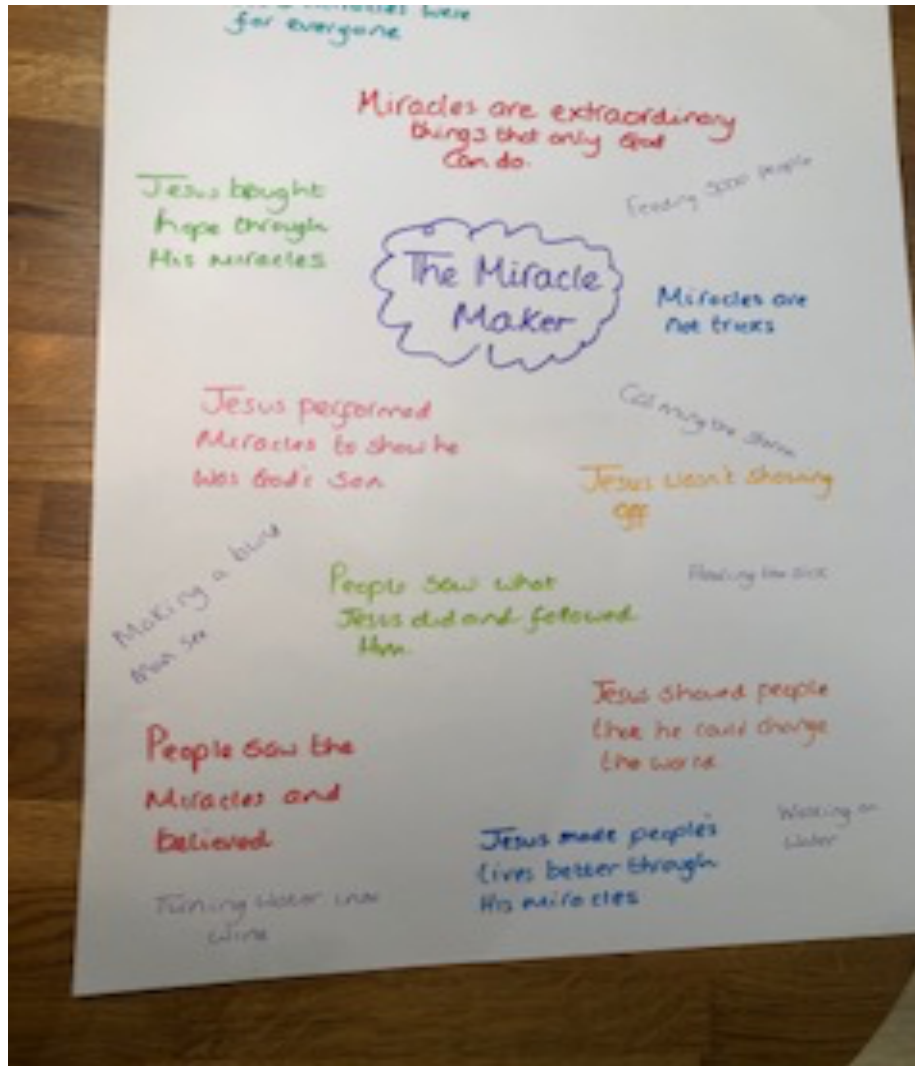 miracles were
for everyone
Miracles are extraordinary
things that only God
can do.
Feeding 5000 people
Jesus bought
hope through
His miracles
The Miracle
Maker
Miracles are
not tricks
Calming the storm
Jesus performed
Miracles to show he
was God's son
Jesus wasn't showing
off
Making a blind
man see
People saw what
Jesus did and followed
Him.
Healing the sick
Jesus showed people
that he could change
the world
People saw the
Miracles and
believed
Jesus made people's
lives better through
His miracles
Walking on
water
Turning water into
wine